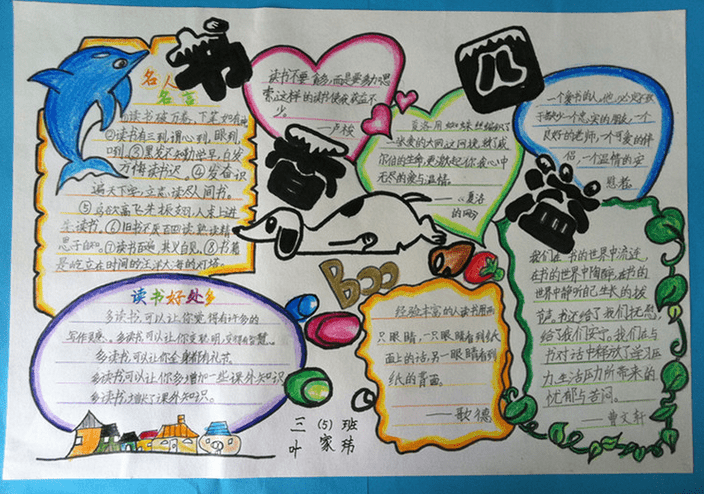 书
香
四
溢
名人
名言
①读书破万卷,下笔如有神
②读书有三到,谓心到,眼到
口到。③黑发不知勤学早,白发
方悔读书迟。④发奋识
遍天下字,立志读尽人间书。
⑤鸟欲高飞先振翅,人求上进
先读书。⑥旧书不厌百回读,熟读精
思子自知。⑦读书百遍,其义自见。⑧书籍
是屹立在时间的汪洋大海的灯塔。
读书不要贪多,而是要多加思
索,这样的读书使我获益不
少。
——卢梭
夏洛用蜘蛛丝编织了
一张爱的大网,这网挽救了威
尔伯的生命,更激起你我心中
无尽的爱与温情。
——《夏洛
的网》
一个爱书的人,他必定不致
于缺少一个忠实的朋友,一个
良好的老师,一个可爱的伴
侣,一个温情的安
慰者。
Boo
读书好处多
多读书,可以让你觉得有许多的
写作灵感。多读书,可以让你变聪明,变得有智慧。
多读书,可以让你全身都有礼节。
多读书可以让你多增加一些课外知识。
多读书,增长了课外知识。
经验丰富的人读书用两
只眼睛,一只眼睛看到纸
面上的话,另一眼睛看到
纸的背面。
——歌德
我们在书的世界中流连,
在书的世界中陶醉,在书的
世界中静听自己生长的拔
节声,书还给了我们抚慰,
给了我们安宁。我们在与
书对话中释放了学习压
力、生活压力所带来的
忧郁与苦闷。
——曹文轩
三(5)班
叶家玮